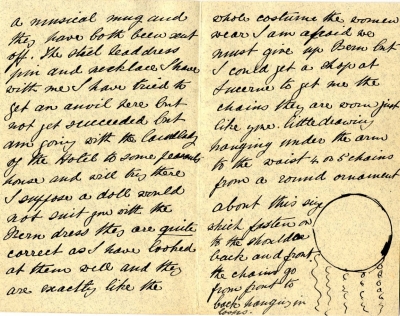 a musical mug and
they have both been sent
off. The steel headdress
pin and necklace I have
with me I have tried to
get an anvil here but
not yet succeeded but
am going with the landlady
of the Hotel to some peasants
house and will try there
I suppose a doll would
not suit you with the
Bern dress they are quite
correct as I have looked
at them well and they
are exactly like the
whole costume the women
wear I am afraid we
must give up Bern but
I could get a shop at
Lucerne to get me the
chains they are worn just
like your little drawing
hanging under the arm
to the waist 4 or 5 chains
from a round ornament
about this size
which fasten on
to the shoulder
back and front
the chains go
from front to
back hanging in
loops.